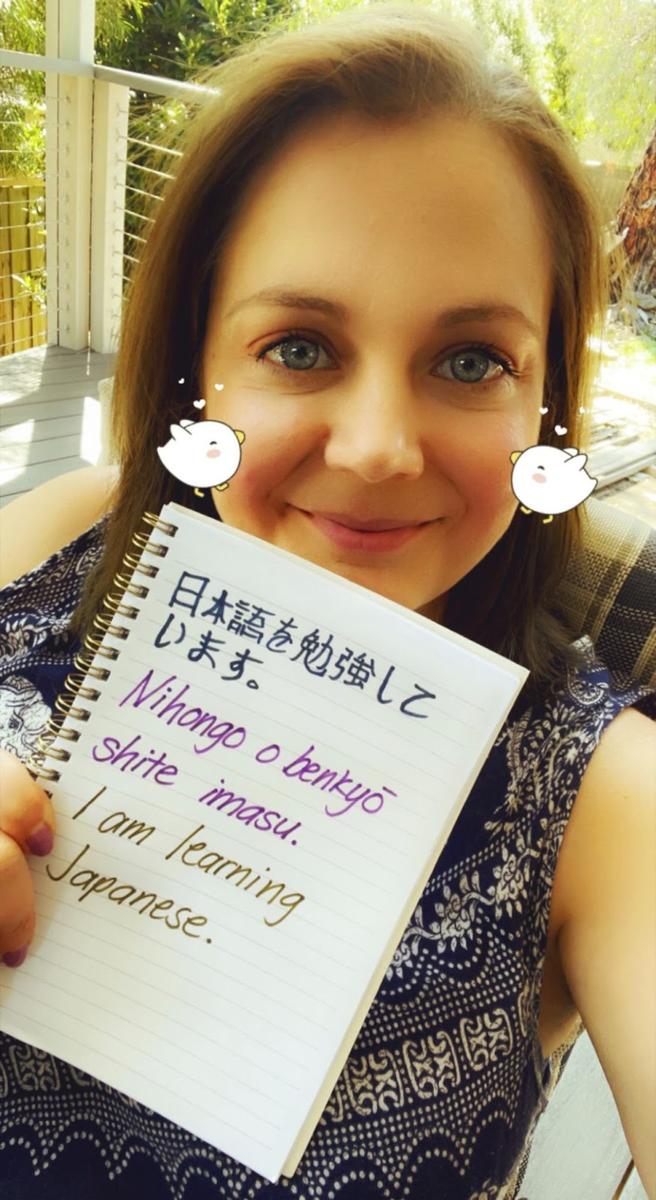 日本語を勉強して
います。
Nihongo o benkyō
shite imasu.
I am learning
Japanese.